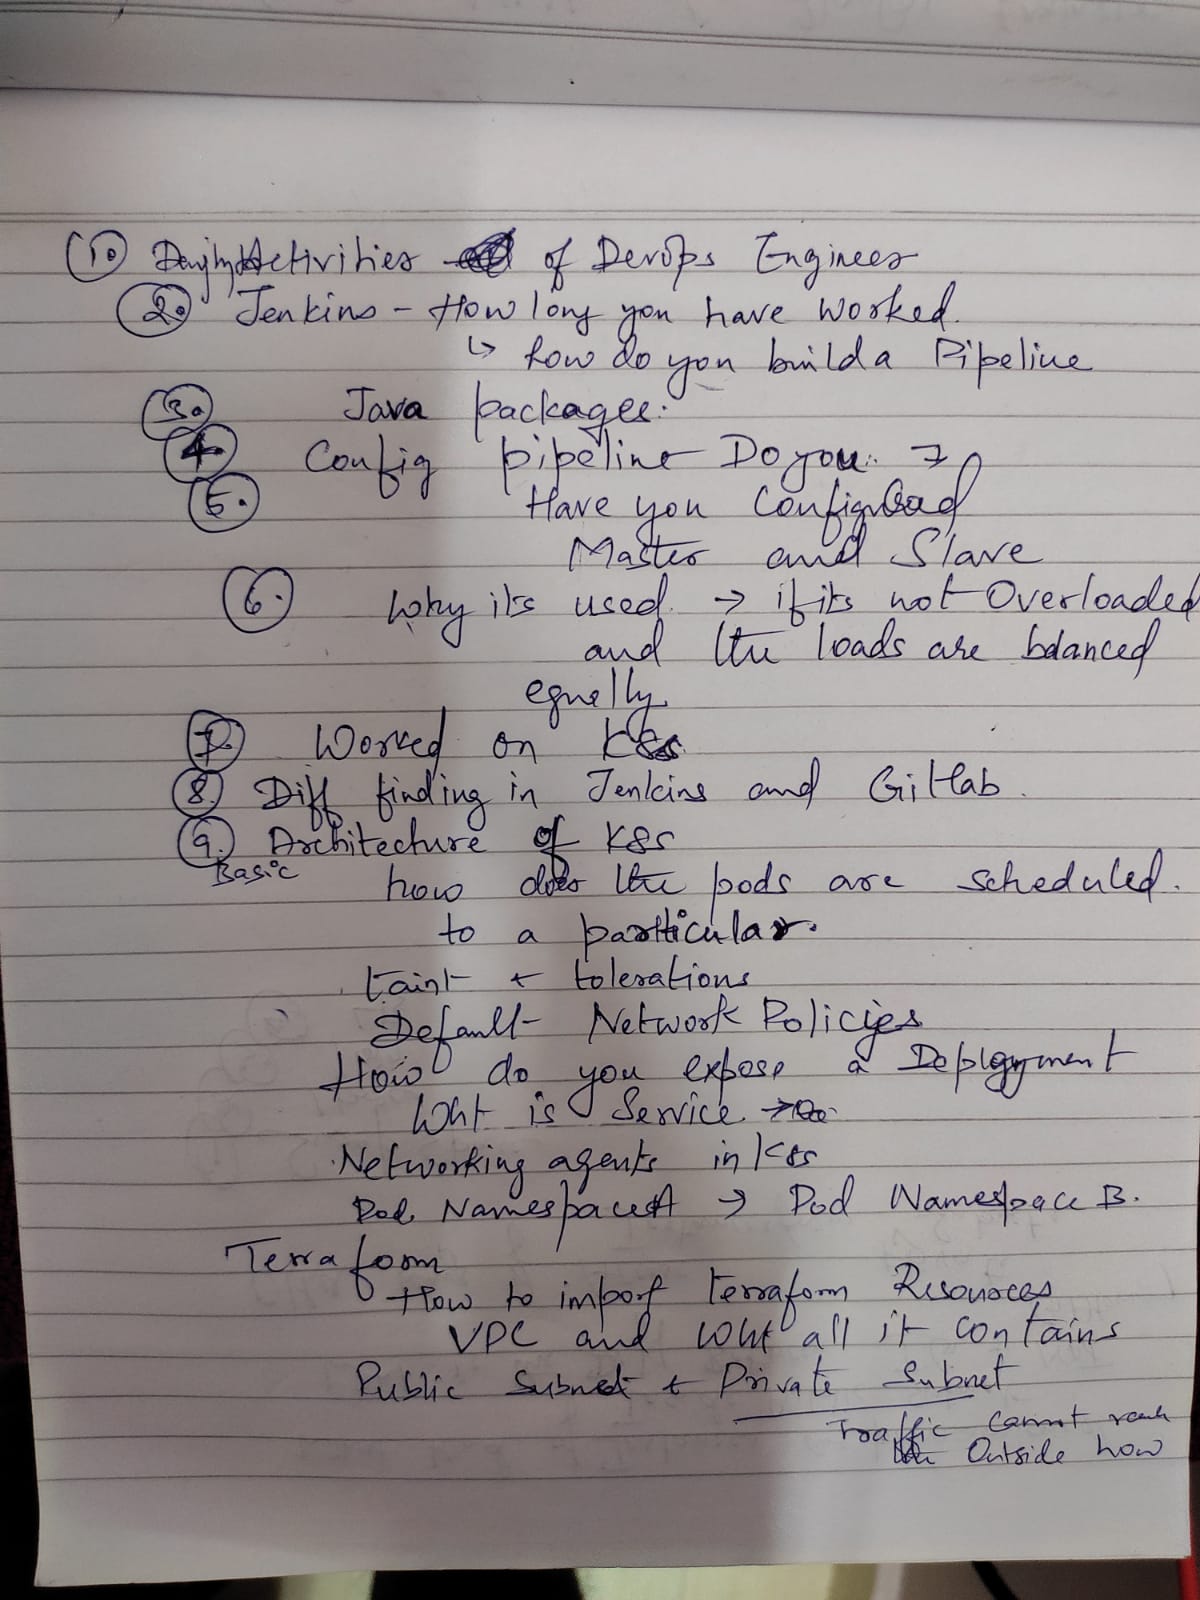 1. Daily Activities of DevOps Engineer
2. Jenkins - How long you have worked.
↳ how do you build a Pipeline
3. Java packages.
4. Config pipeline Do you
5. Have you Configured
Master and Slave
6. Why its used. → if its not Overloaded
and the loads are balanced
equally.
7. Worked on K8s
8. Diff finding in Jenkins and Gitlab.
9. Architecture of K8s
Basic how does the pods are scheduled.
to a particular.
taint + tolerations
Default Network Policies
How do you expose a Deployment
Wht is Service →
Networking agents in K8s
Pod Namespaces A → Pod Namespace B.
Terraform
How to import terraform Resources
VPC and wht all it contains
Public Subnet + Private Subnet
Traffic Cannot reach
Outside how